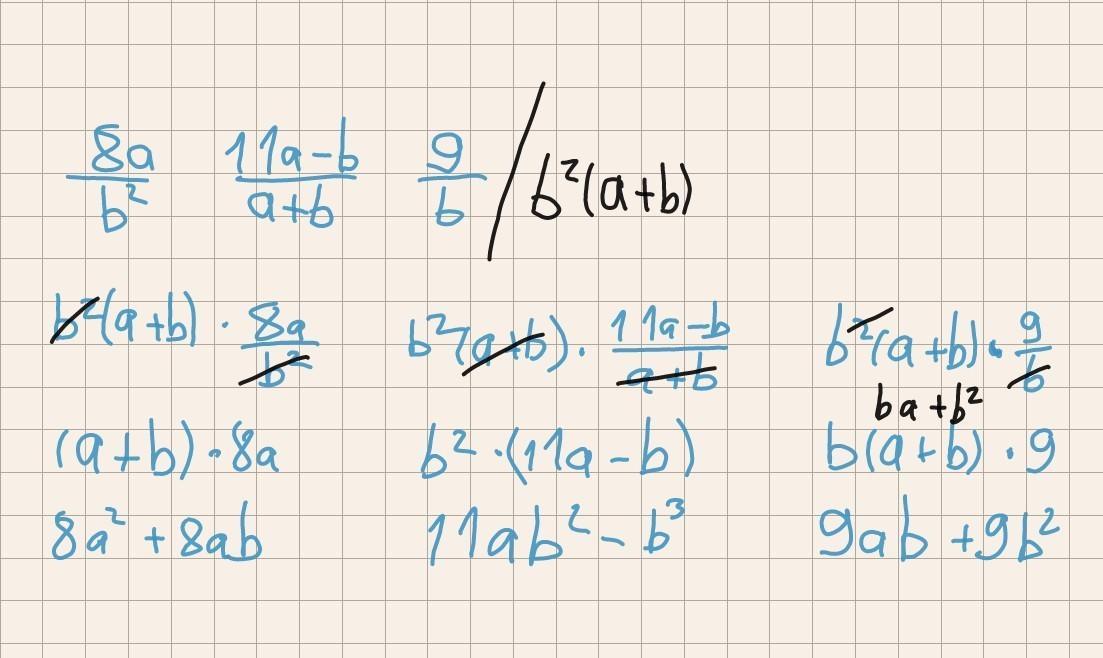 8a/b² (11a-b)/(a+b) 9/b / b²(a+b)
b²(a+b) · 8a/b² b²(a+b) · (11a-b)/(a+b) b²(a+b) · 9/b
ba+b²
(a+b) · 8a b² · (11a-b) b(a+b) · 9
8a² + 8ab 11ab² - b³ 9ab + 9b²